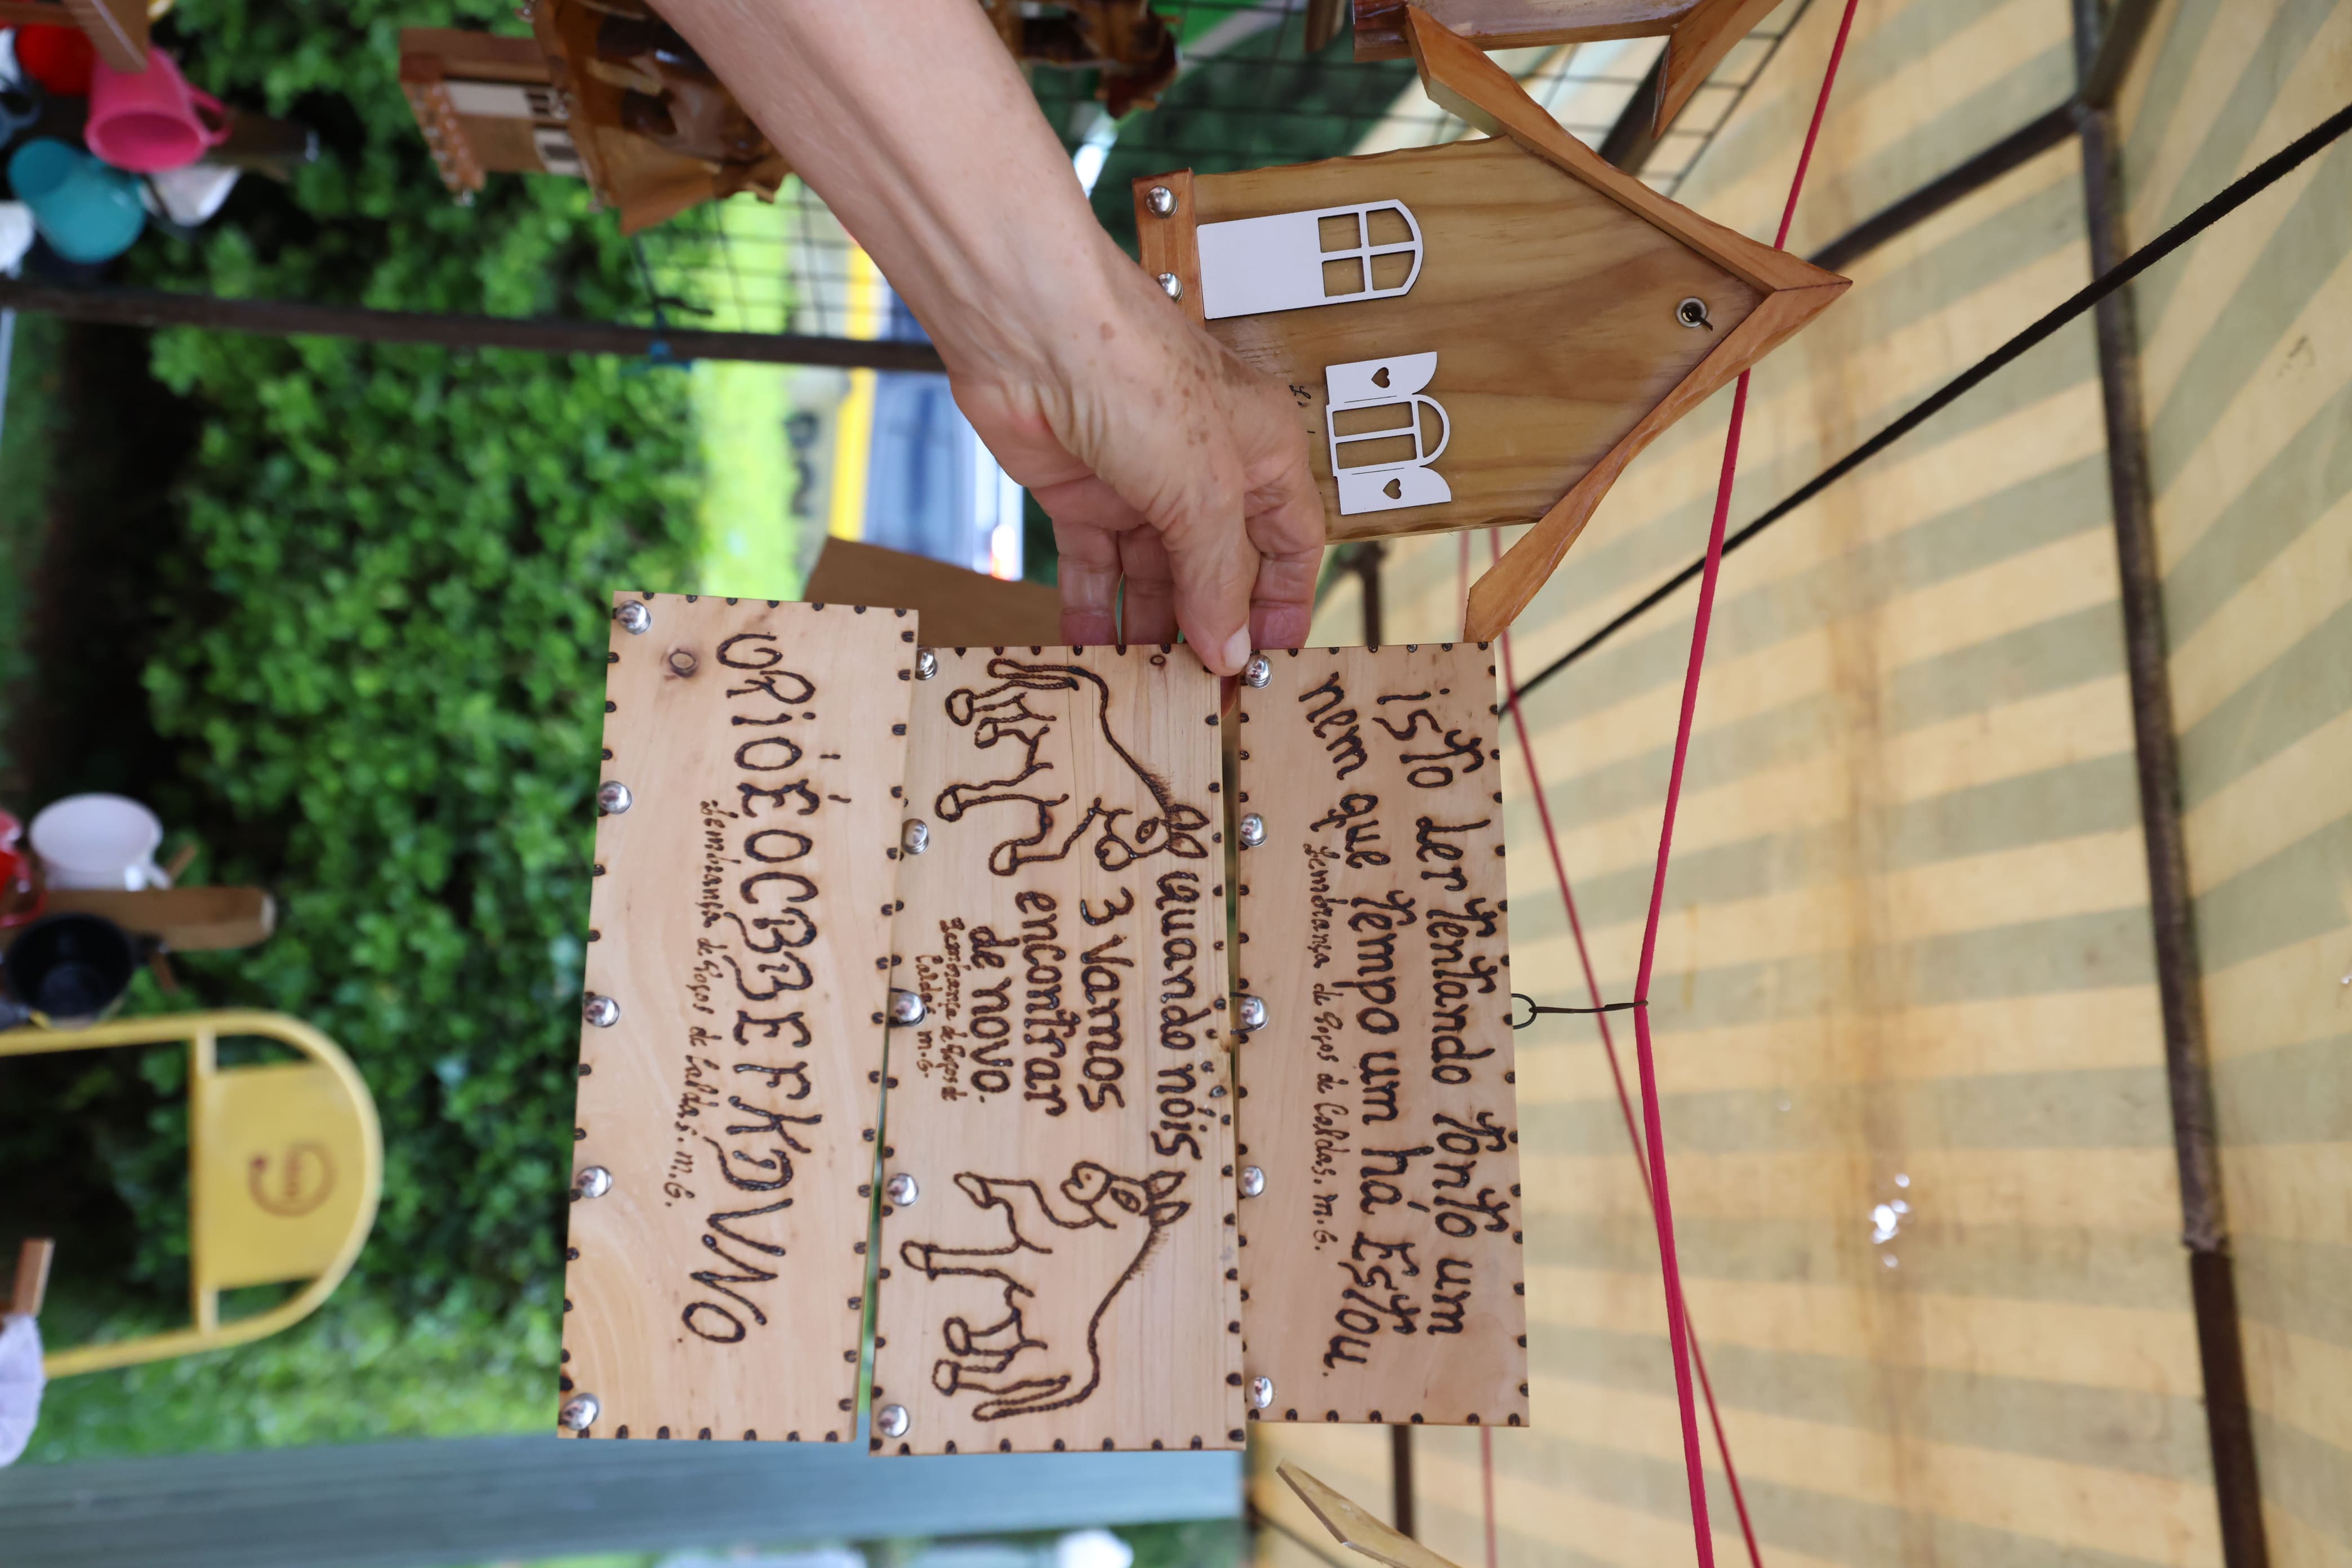 isto Ler tentando tonto um
nem que tempo um há Estou.
Lembrança de Poços de Caldas. M.G.
quando nóis
3 vamos
encontrar
de novo.
Lembrança de Poços de
Caldas M.G.
Lembrança de Poços de Caldas. M.G.